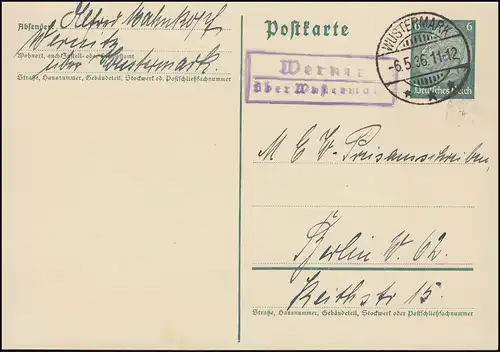 Absender: Alfred Mahnkopf
Wernitz
Wohnort, auch Zustell- oder Leitpostamt
über Wustermark.
Straße, Hausnummer, Gebäudeteil, Stockwerk od. Postschließfachnummer
Postkarte
6
Deutsches Reich
WUSTERMARK
-6.5.36.11-12
Wernitz
über Wustermark
M E W- Preisausschreiben,
Berlin W. 62.
Keithstr 15.
Straße, Hausnummer, Gebäudeteil, Stockwerk oder Postschließfachnummer